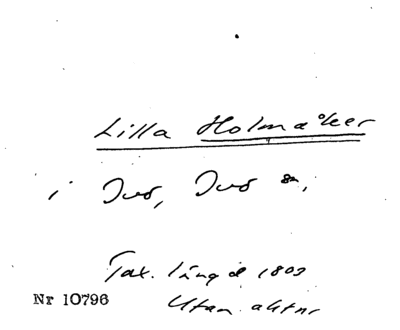 Lilla Holmåker
i Ivö, Ivö sn,
Tax. längd 1802
Nr 10796
Utan aktnr